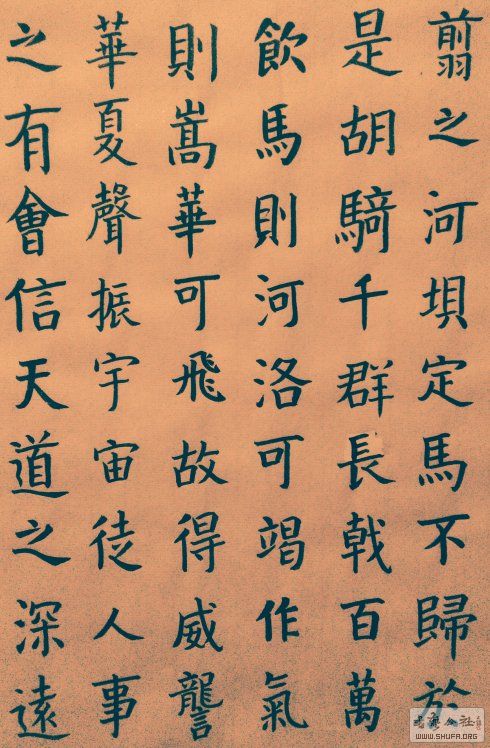 翦之河坝定馬不歸於
是胡騎千群長戟百萬
飲馬則河洛可竭作氣
則嵩華可飛故得威讋
華夏聲振宇宙徒人事
之有會信天道之深遠
WWW.SHUFA.ORG